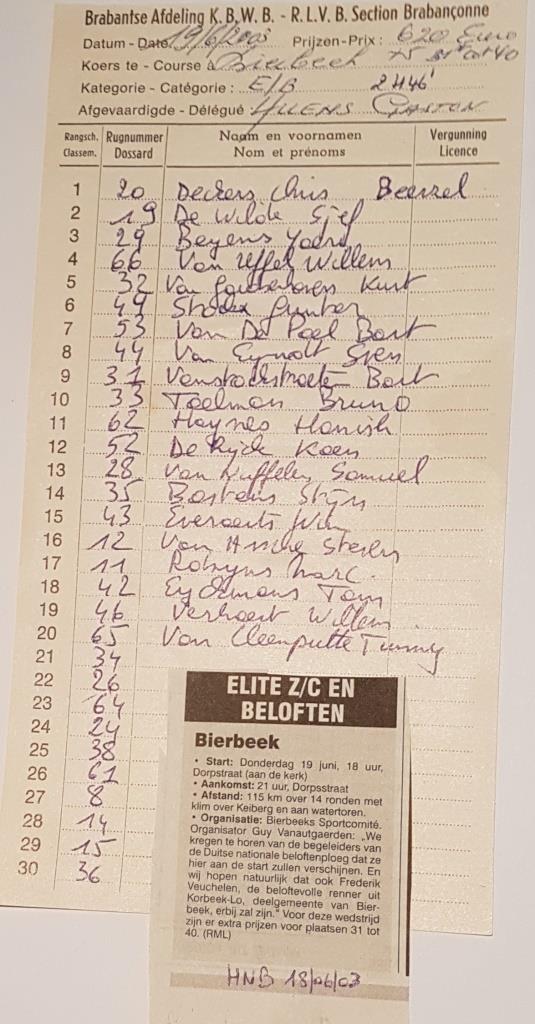 Brabantse Afdeling K.B.W.B. - R.L.V.B. Section Brabançonne
Datum - Date Prijzen - Prix : 620 Euro
Koers te - Course à Bierbeek
Kategorie - Catégorie : E/B 2H46'
Afgevaardigde - Délégué
Rangsch. Classem. Rugnummer Dossard Naam en voornamen Nom et prénoms Vergunning Licence
1 20 Deckers Chris Beersel
2 19 De Wilde Sjef
3 29 Beyens Jord
4 66 Van Uffel Willem
5 32 Van Guthoven Kurt
6 49
7 53 Van De Poel Bart
8 44 Van Eynott Sven
9 31 Vanstadstraeten Bart
10 33 Teelman Bruno
11 62 Haynes Hamish
12 52 De Kezel Koen
13 28 Van Hoffelen Samuel
14 35
15 43 Iveraasen Frits
16 12 Van Hunsel Steven
17 11 Ronyns Marc
18 42 Eyckmans Tom
19 46 Verboert Willem
20 65 Van Cleemputte Timmy
21 34
22 26
23 64
24 24
25 38
26 61
27 8
28 14
29 15
30 36
ELITE Z/C EN
BELOFTEN
Bierbeek
• Start: Donderdag 19 juni, 18 uur,
Dorpstraat (aan de kerk)
• Aankomst: 21 uur, Dorpsstraat
• Afstand: 115 km over 14 ronden met
klim over Keiberg en aan watertoren.
• Organisatie: Bierbeeks Sportcomité.
Organisator Guy Vanautgaerden: „We
kregen te horen van de begeleiders van
de Duitse nationale beloftenploeg dat ze
hier aan de start zullen verschijnen. En
wij hopen natuurlijk dat ook Frederik
Veuchelen, de beloftevolle renner uit
Korbeek-Lo, deelgemeente van Bier-
beek, erbij zal zijn.” Voor deze wedstrijd
zijn er extra prijzen voor plaatsen 31 tot
40. (RML)
HNB 18/06/03